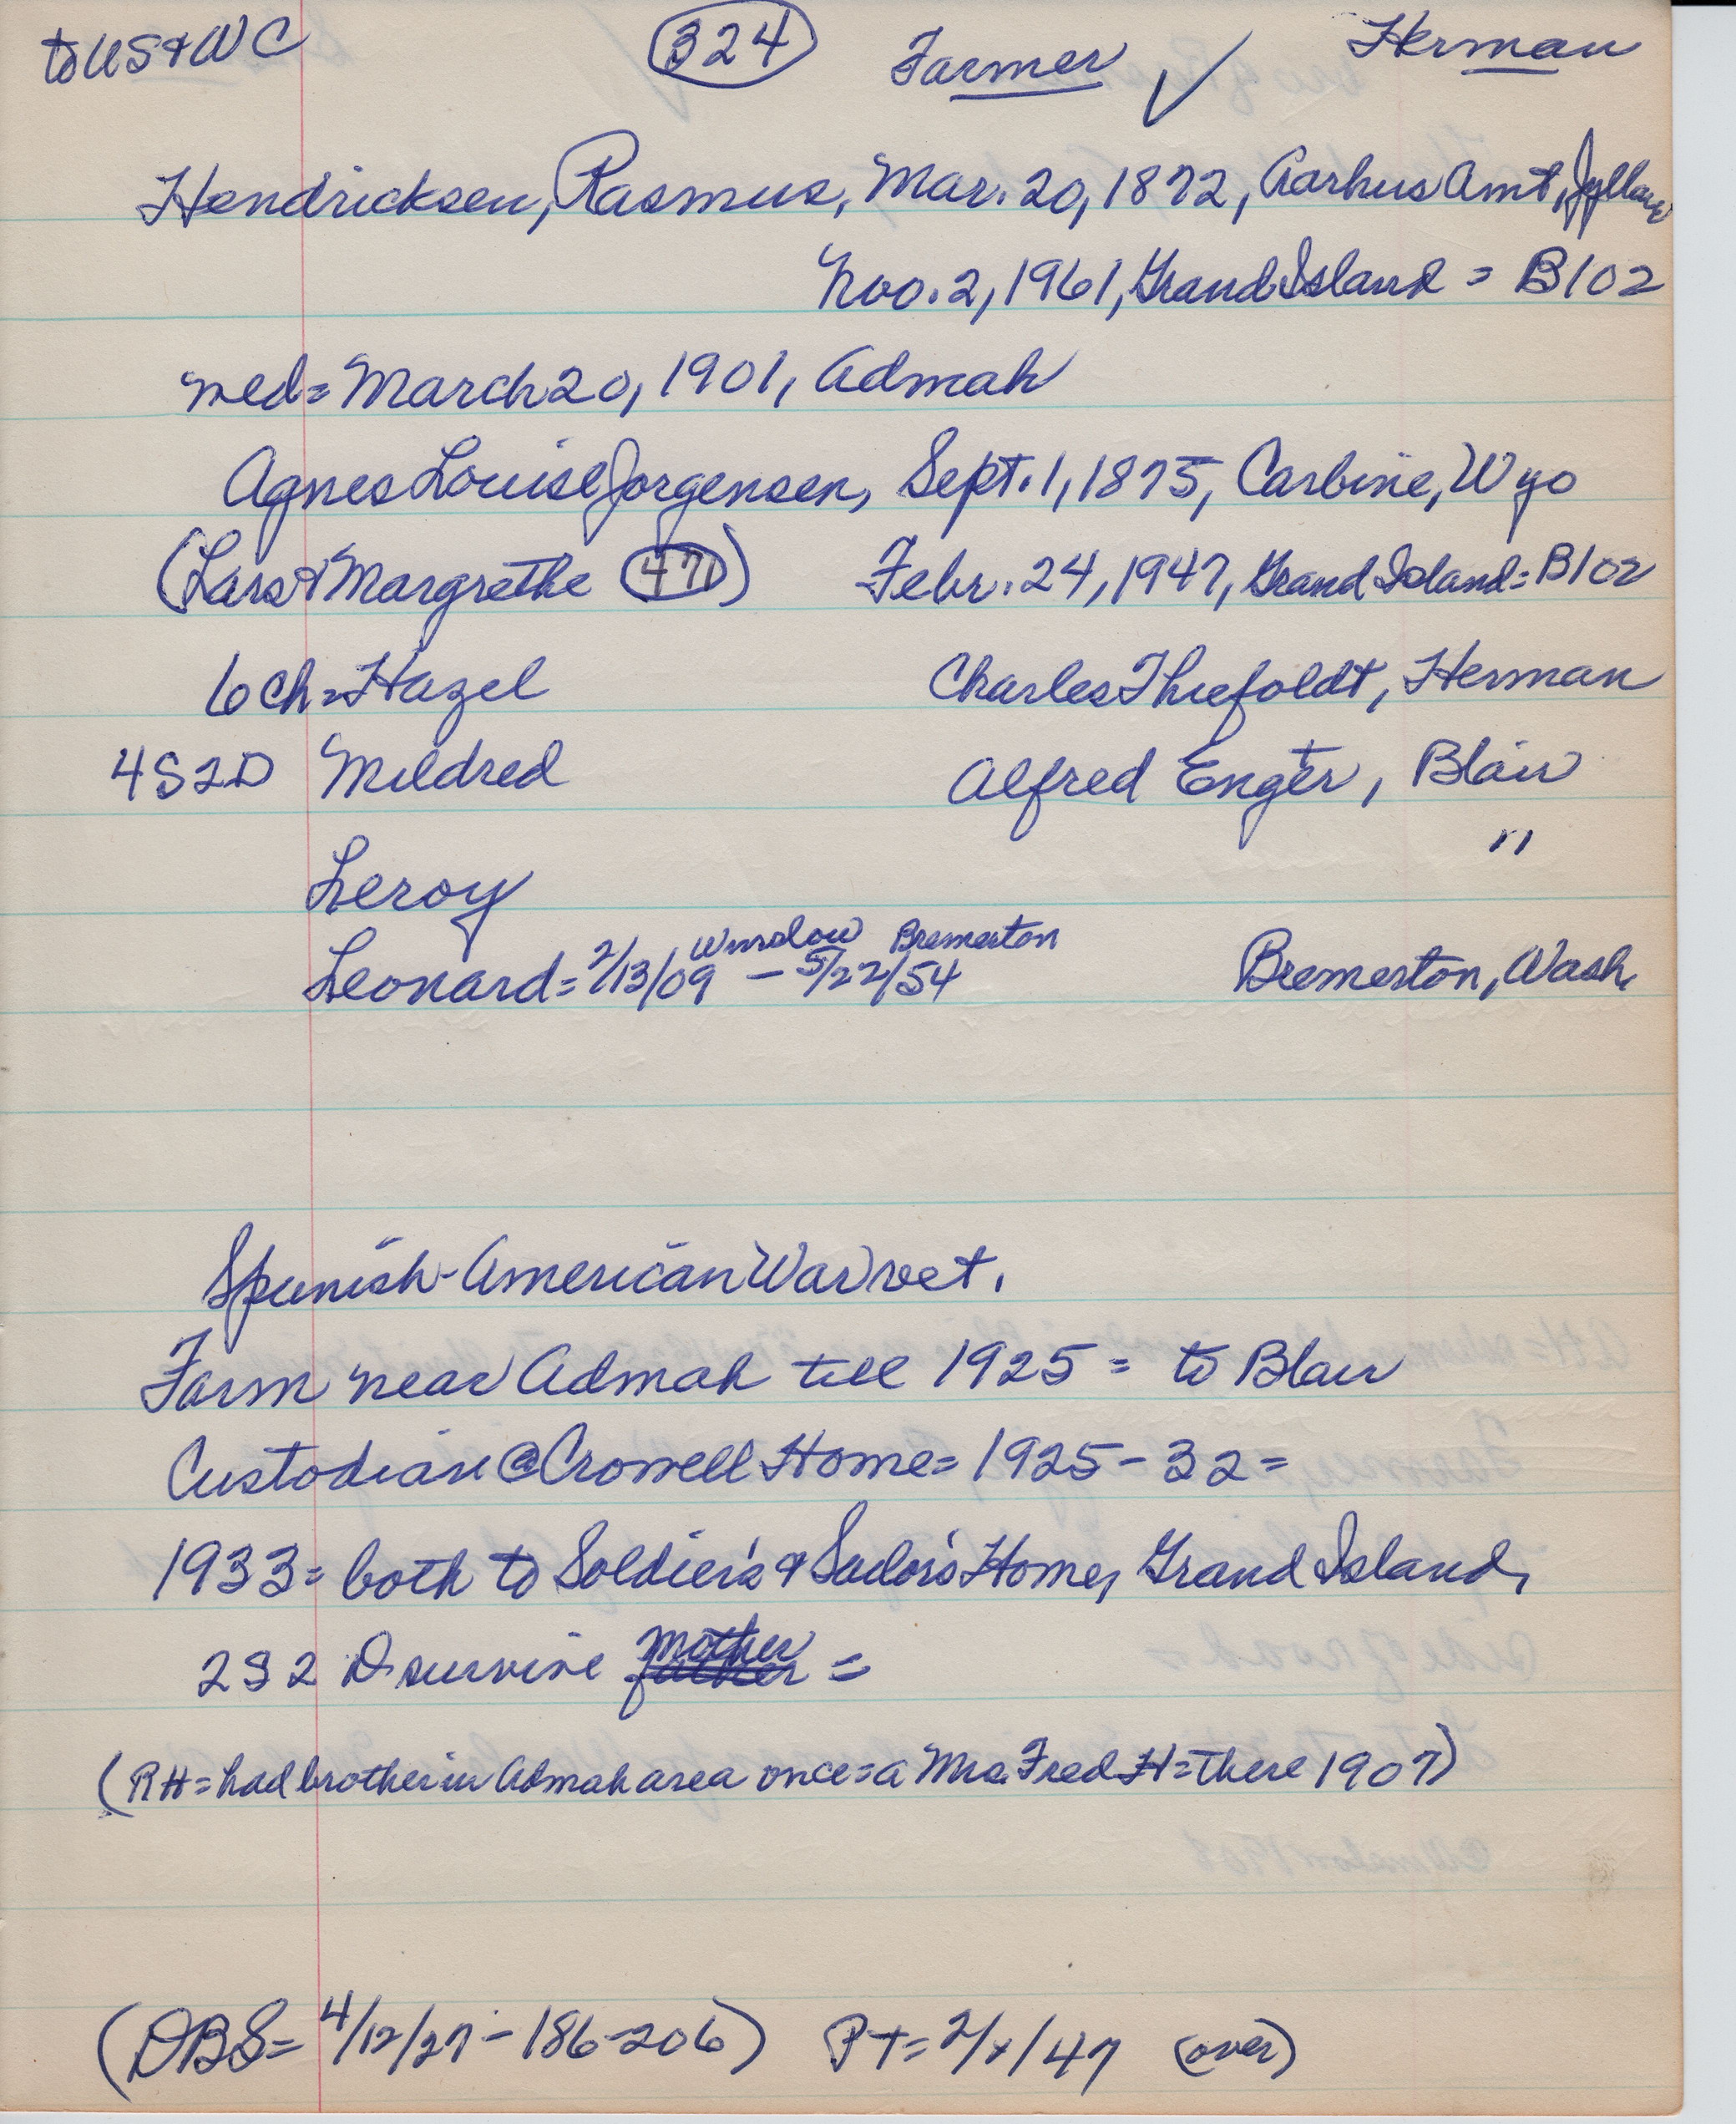 to US & WC 324 Farmer ✓ Herman
Hendricksen, Rasmus, Mar. 20, 1872, Aarhus Amt, Jylland
Nov. 2, 1961, Grand Island = B102
med = March 20, 1901, Admah
Agnes Louise Jorgensen, Sept. 1, 1875, Carbine, Wyo
(Lars & Margrethe 471) Febr. 24, 1947, Grand Island = B102
6 ch = Hazel Charles Thiefoldt, Herman
4S2D Mildred Alfred Enger, Blair
"
Leroy
Winslow Bremerton
Leonard = 2/13/09 – 5/22/54 Bremerton, Wash.
Spanish-American War vet.
Farm near Admah till 1925 = to Blair
Custodian @ Crowell Home = 1925 – 32 =
1933 = both to Soldier's & Sailor's Home, Grand Island,
mother
2S 2 D survive father =
(RH = had brother in Admah area once = a Mrs. Fred H = there 1907)
(DBS = 4/12/27 – 186-206) PT = 2/x/47 (over)